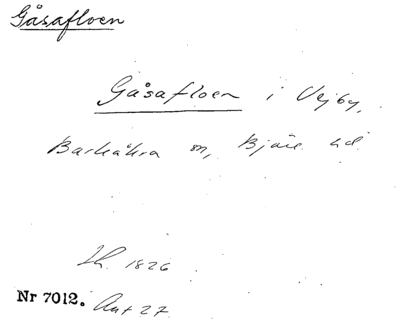 Gåsafloen
Gåsafloen i Vejby,
Barkåkra sn, Bjäre hd.
1826
Nr 7012. Akt 27